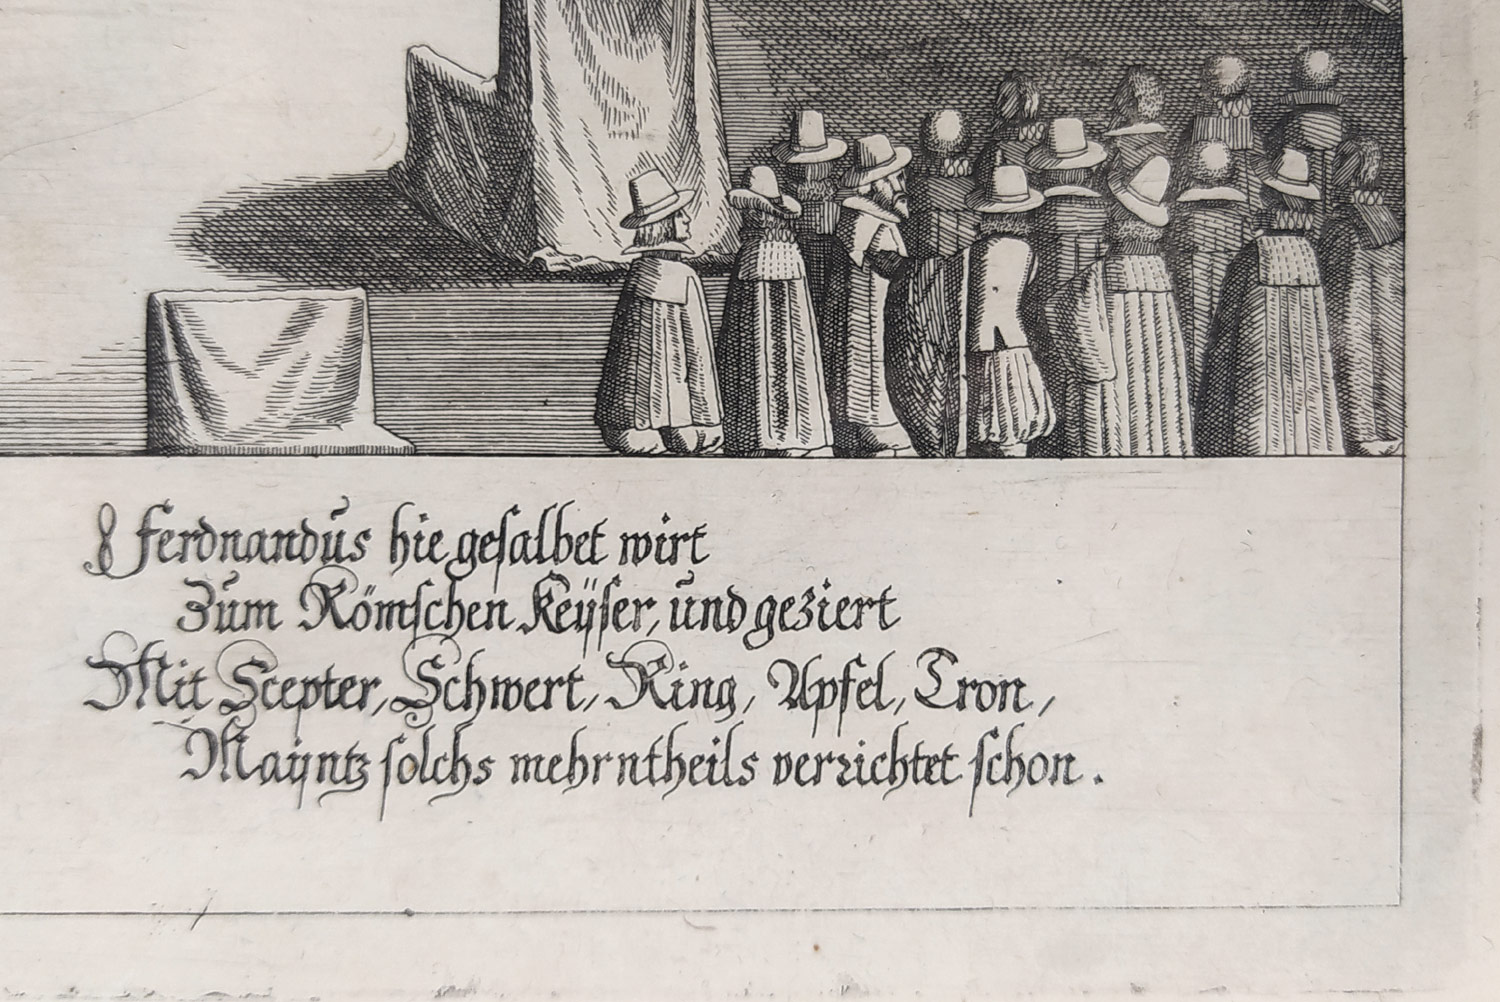 8 Ferdnandus hie gesalbet wirt
Zum Römschen Keÿser, und geziert
Mit Scepter, Schwert, Ring, Apfel, Cron,
Mayntz solchs mehrntheils verrichtet schon.